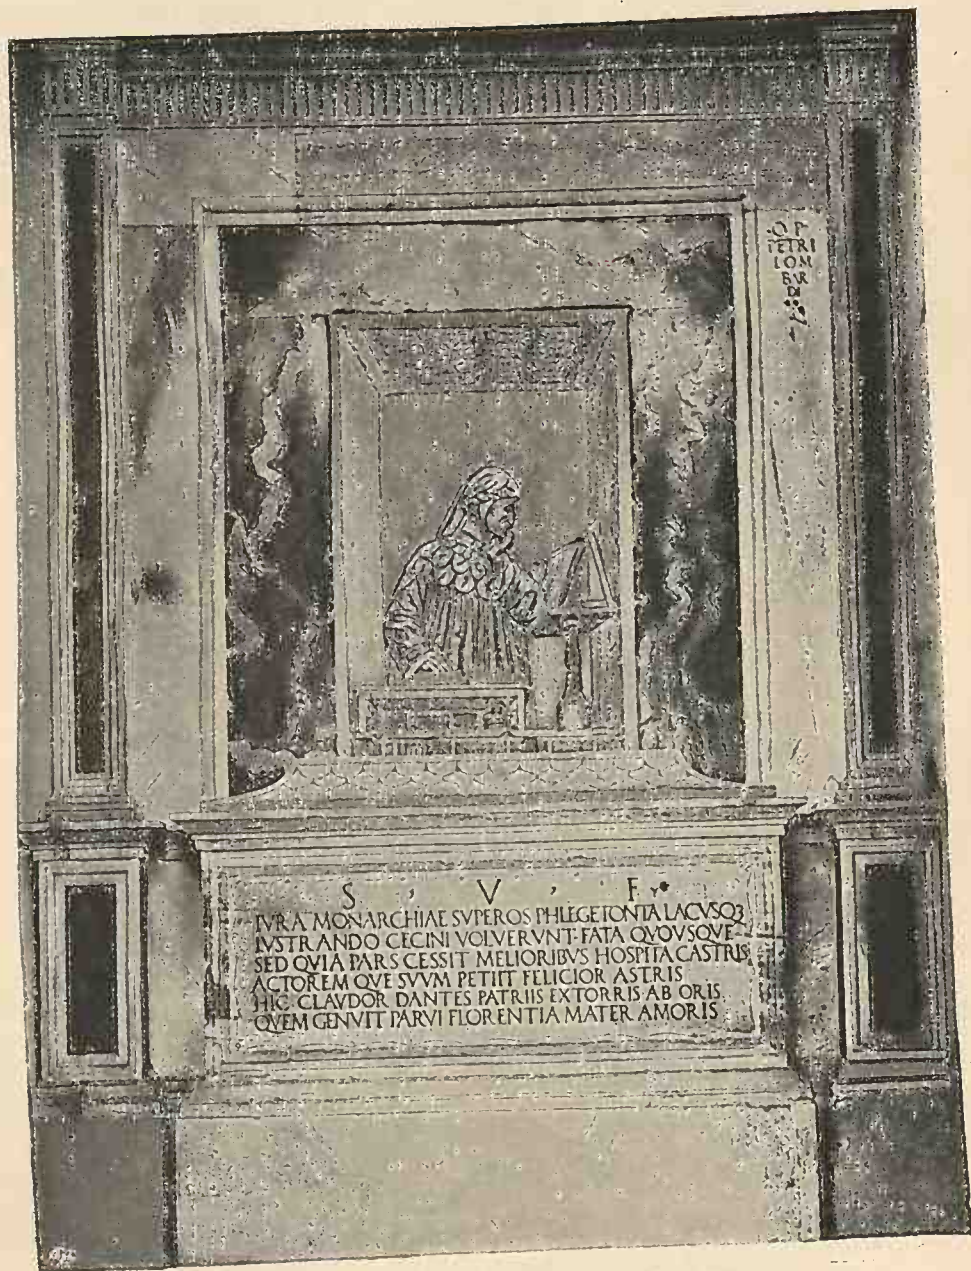 OP
PETRI
LOM
BAR
DI
S , V , F
IVRA MONARCHIAE SVPEROS PHLEGETONTA LACVSQ3
LVSTRANDO CECINI VOLVERVNT FATA QVOVSQVE
SED QVIA PARS CESSIT MELIORIBVS HOSPITA CASTRIS
ACTOREM QVE SVVM PETIIT FELICIOR ASTRIS
HIC CLAVDOR DANTES PATRIIS EXTORRIS AB ORIS
QVEM GENVIT PARVI FLORENTIA MATER AMORIS